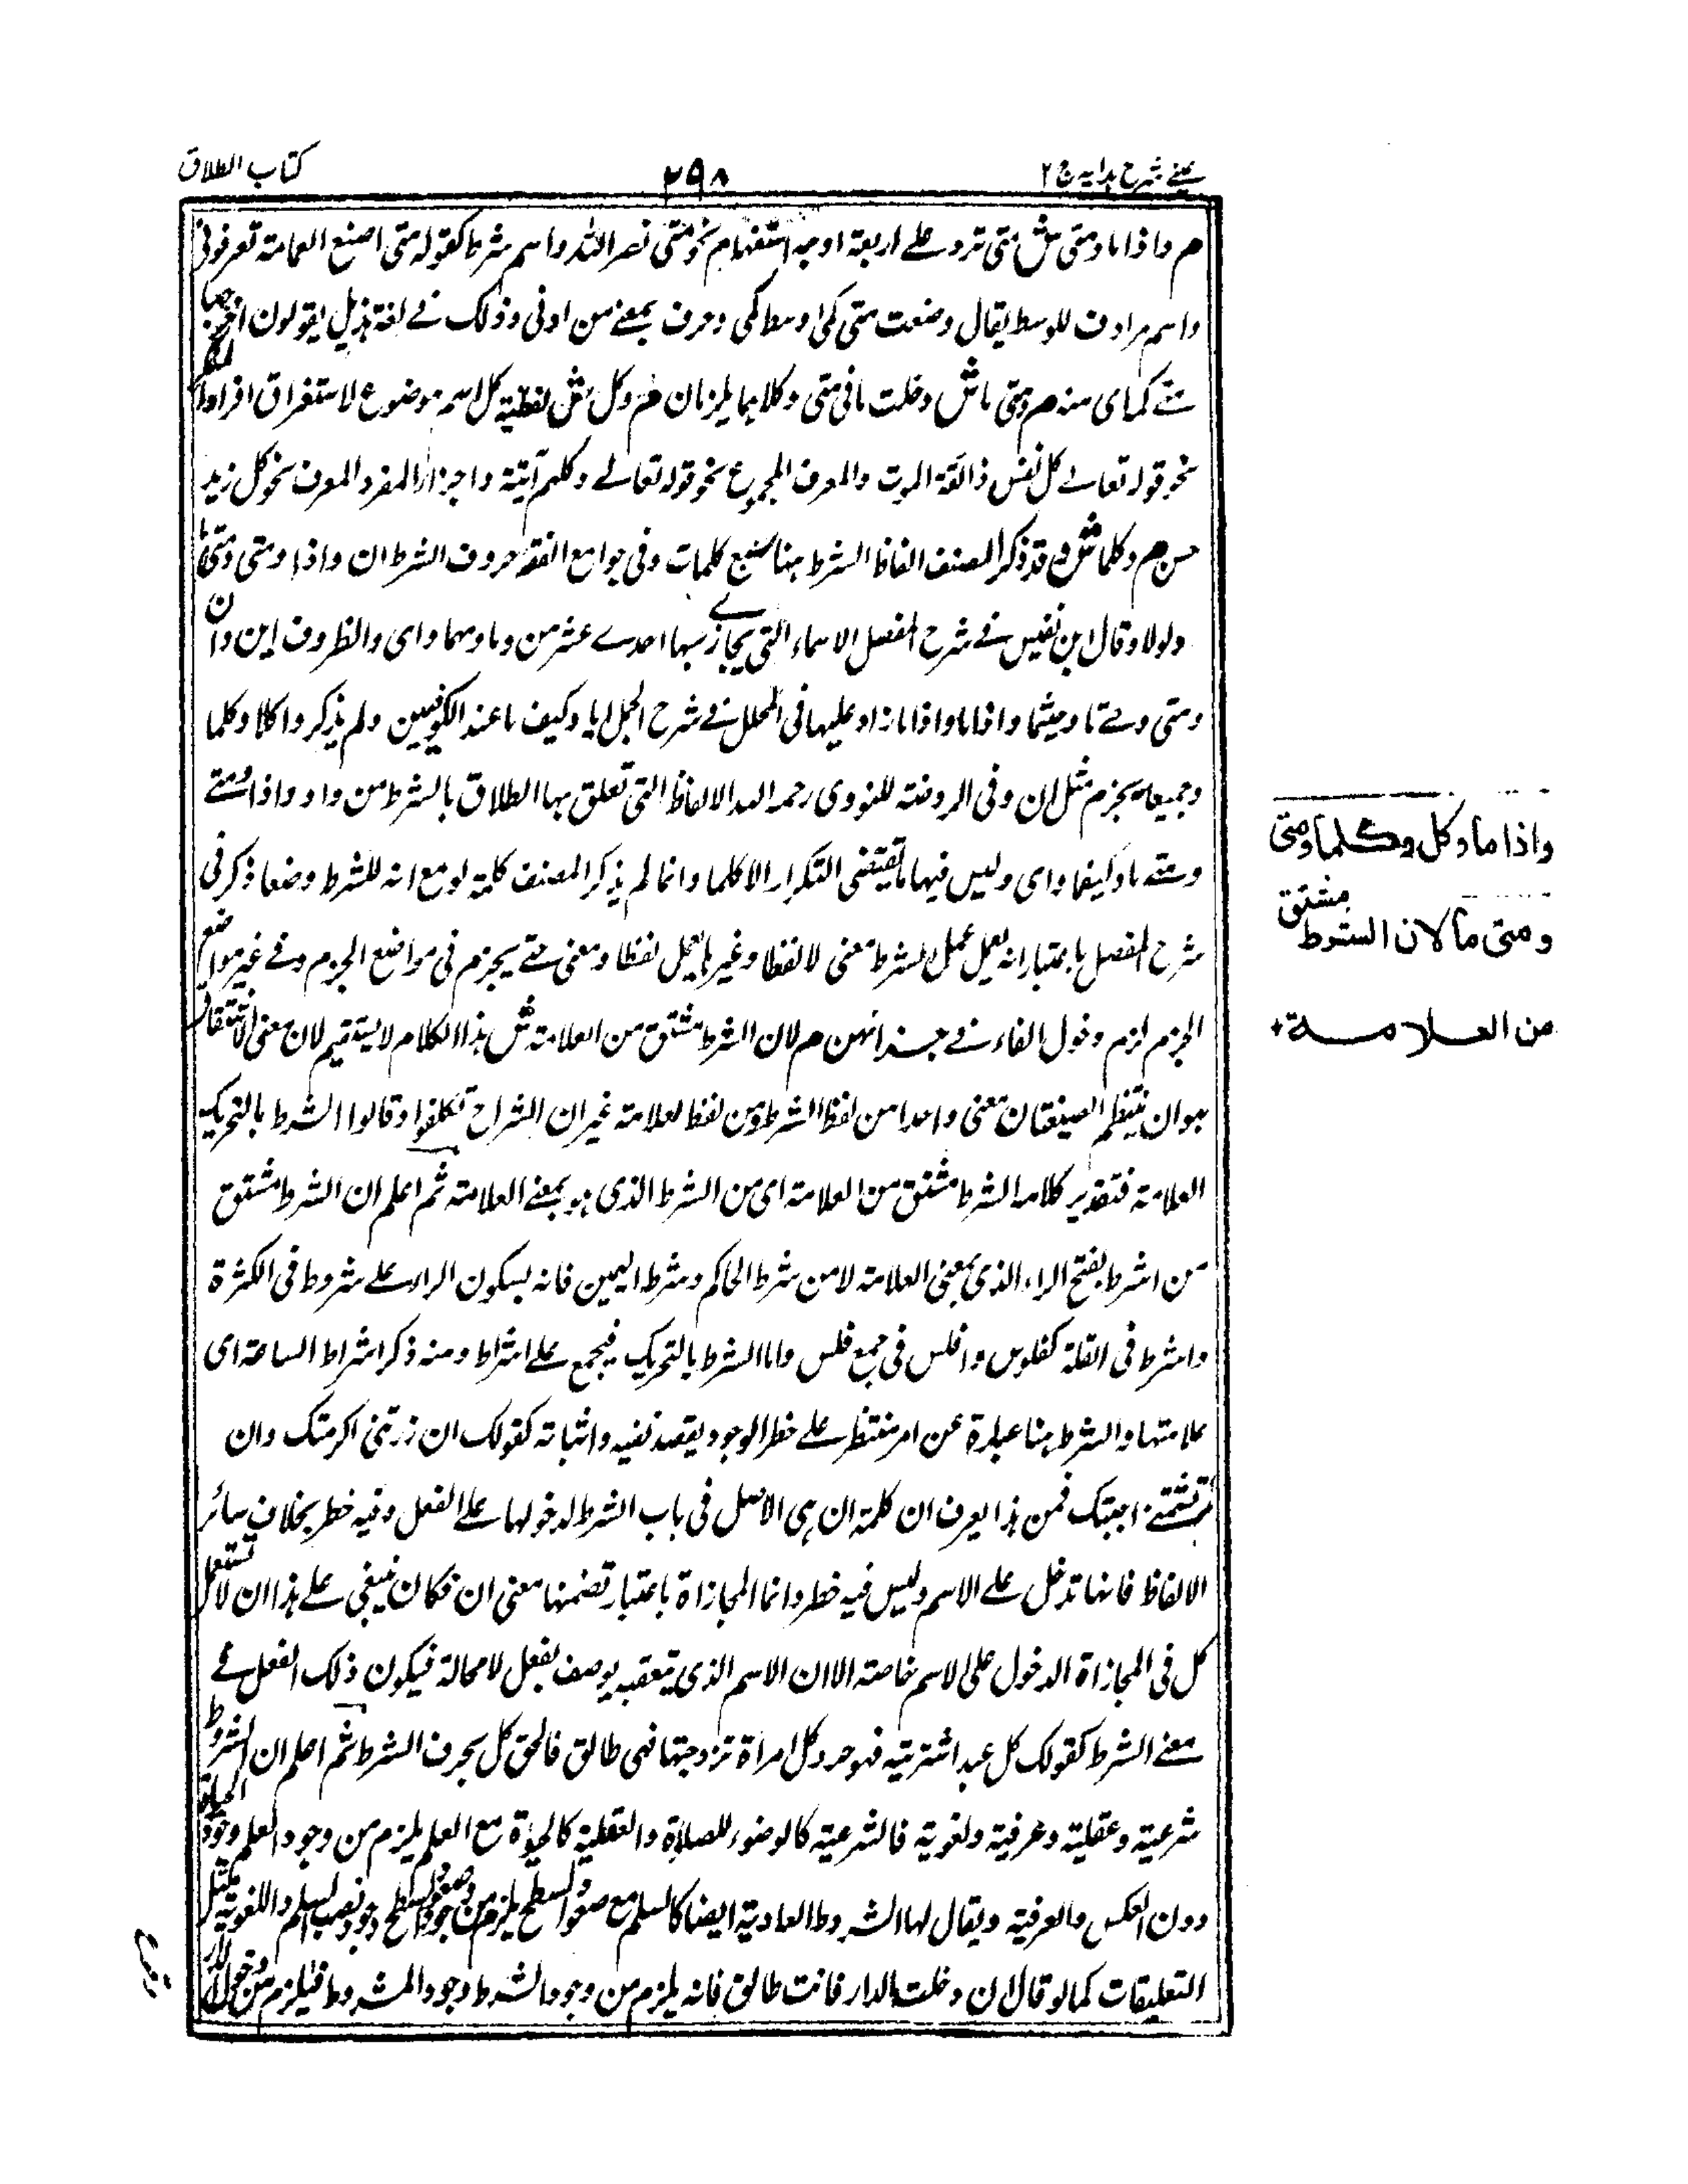 عینی شرح ہدایہ ج ۲
۲۹۸
کتاب الطلاق
م واذا ما ومتی ش متی ترد علے اربعة اوجہ استفہام نحو متی نصر اللہ واسم شرط کقولہ متی اضع العمامة تعرفونی
واسم مرادف للوسط یقال وضعت متی کمی اوسط کمی وحرف بمعنے من اوفی وذلک فے لغة ہذیل یقولون اخرجہا
متے کمہ ای منہ م ومتی ما ش دخلت ما فی متی وکلاہما یلزمان م وکل ش لفظة کل اسم موضوع لاستغراق افراد المنکر
نحو قولہ تعالے کل نفس ذائقة الموت والمعرف المجموع نحو قولہ تعالے وکلہم آتیہ واجزاء المفرد المعرف نحو کل زید
حسن م وکلما ش وقد ذکر المصنف الفاظ الشرط ہنا سبع کلمات وفی جوامع الفقہ حروف الشرط ان واذا ومتی ومتی ما
ولولا وقال ابن نفیس فے شرح المفصل الاسماء التی یجازی بہا احدے عشر من وما ومہما وای والظروف این وان
ومتی ومتے ما وحیثما واذا ما واذا ما زاد علیہا فی المحلل فے شرح الجمل ایا وکیف ما عند الکوفیین ولم یذکروا کلا وکلما
وجمیعہا یجزم مثل ان وفی الروضة للنووی رحمہ اللہ الالفاظ التی تعلق بہا الطلاق بالشرط من واد واذا ومتے
ومتے ما وکیفما وای ولیس فیہا ما یقتضی التکرار الا کلما وانما لم یذکر المصنف کلمة لو مع انہ للشرط وضعا ذکر فی
شرح المفصل باعتبار انہ یعمل عمل الشرط معنی لا لفظا وغیرہا یعمل لفظا ومعنی حتے یجزم فی مواضع الجزم وفے غیر مواضع
الجزم لزم دخول الفاء فے جزائہن م لان الشرط مشتق من العلامة ش ہذا الکلام لا یستقیم لان معنی الاشتقاق
ہو ان ینتظم الصیغتان معنی واحدا من لفظ الشرط ومن لفظ العلامة غیر ان الشراح تکلفوا وقالوا الشرط بالتحریک
العلامة فتقدیر کلامہ الشرط مشتق من العلامة ای من الشرط الذی ہو بمعنے العلامة ثم اعلم ان الشرط مشتق
من اشرط بفتح الراء الذی بمعنی العلامة لا من شرط الحاکم وشرط الیمین فانہ بسکون الراء علے شروط فی الکثرة
واشرط فی القلة کفلوس وافلس فی جمع فلس واما الشرط بالتحریک فیجمع علے اشراط ومنہ ذکر اشراط الساعة ای
علامتہا والشرط ہنا عبارة عن امر منتظر علے خطر الوجود یقصد نفیہ واثباتہ کقولک ان زرتنی اکرمتک وان
لم تشتمنے اجبتک فمن ہذا یعرف ان کلمة ان ہی الاصل فی باب الشرط لدخولہا علے الفعل وفیہ خطر بخلاف سائر
الالفاظ فانہا تدخل علے الاسم ولیس فیہ خطر وانما المجازاة باعتبار تضمنہا معنی ان فکان ینبغی علے ہذا ان لا تستعمل
کل فی المجازاة الدخول علی الاسم خاصة الا ان الاسم الذی یتعقبہ یوصف بفعل لا محالة فیکون ذلک الفعل فے
معنے الشرط کقولک کل عبد اشتریتہ فہو حر وکل امراة تزوجتہا فہی طالق فالحق کل بحرف الشرط ثم اعلم ان الشروط
شرعیة وعقلیة وعرفیة ولغویة فالشرعیة کالوضوء للصلاة والعقلیة کالحیوة مع العلم یلزم من وجود العلم وجود الحیاة
دون العکس والعرفیة ویقال لہا الشروط العادیة ایضا کالسلم مع صعود السطح یلزم من صعود السطح وجود نصب السلم واللغویة مثل
التعلیقات کما لو قال ان دخلت الدار فانت طالق فانہ یلزم من وجود الشرط وجود المشروط فیلزم من دخول الدار
واذا ما وکل وکلما ومتی
ومتی ما لان الشرط مشتق
من العلامة